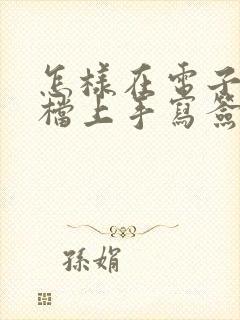 怎樣在電子
檔上手寫簽
孫娟